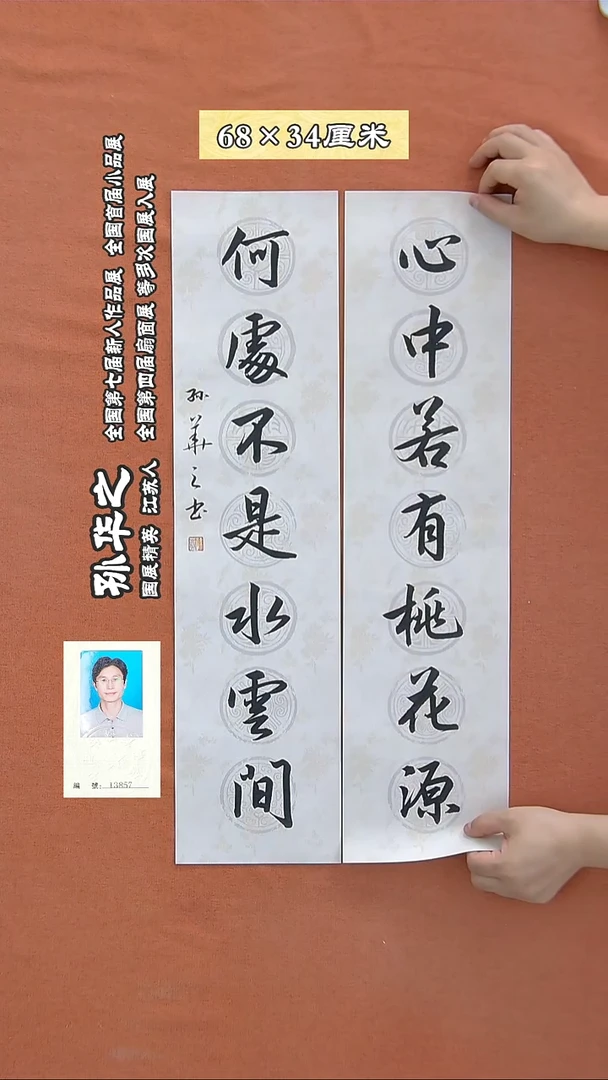 68×34厘米
心中若有桃花源
何處不是水雲間
孙華之书
孙华之
国展精英 江苏人
全国第七届新人作品展 全国首届小品展
全国第四届扇面展 等多次国展入展
編 號: 13857